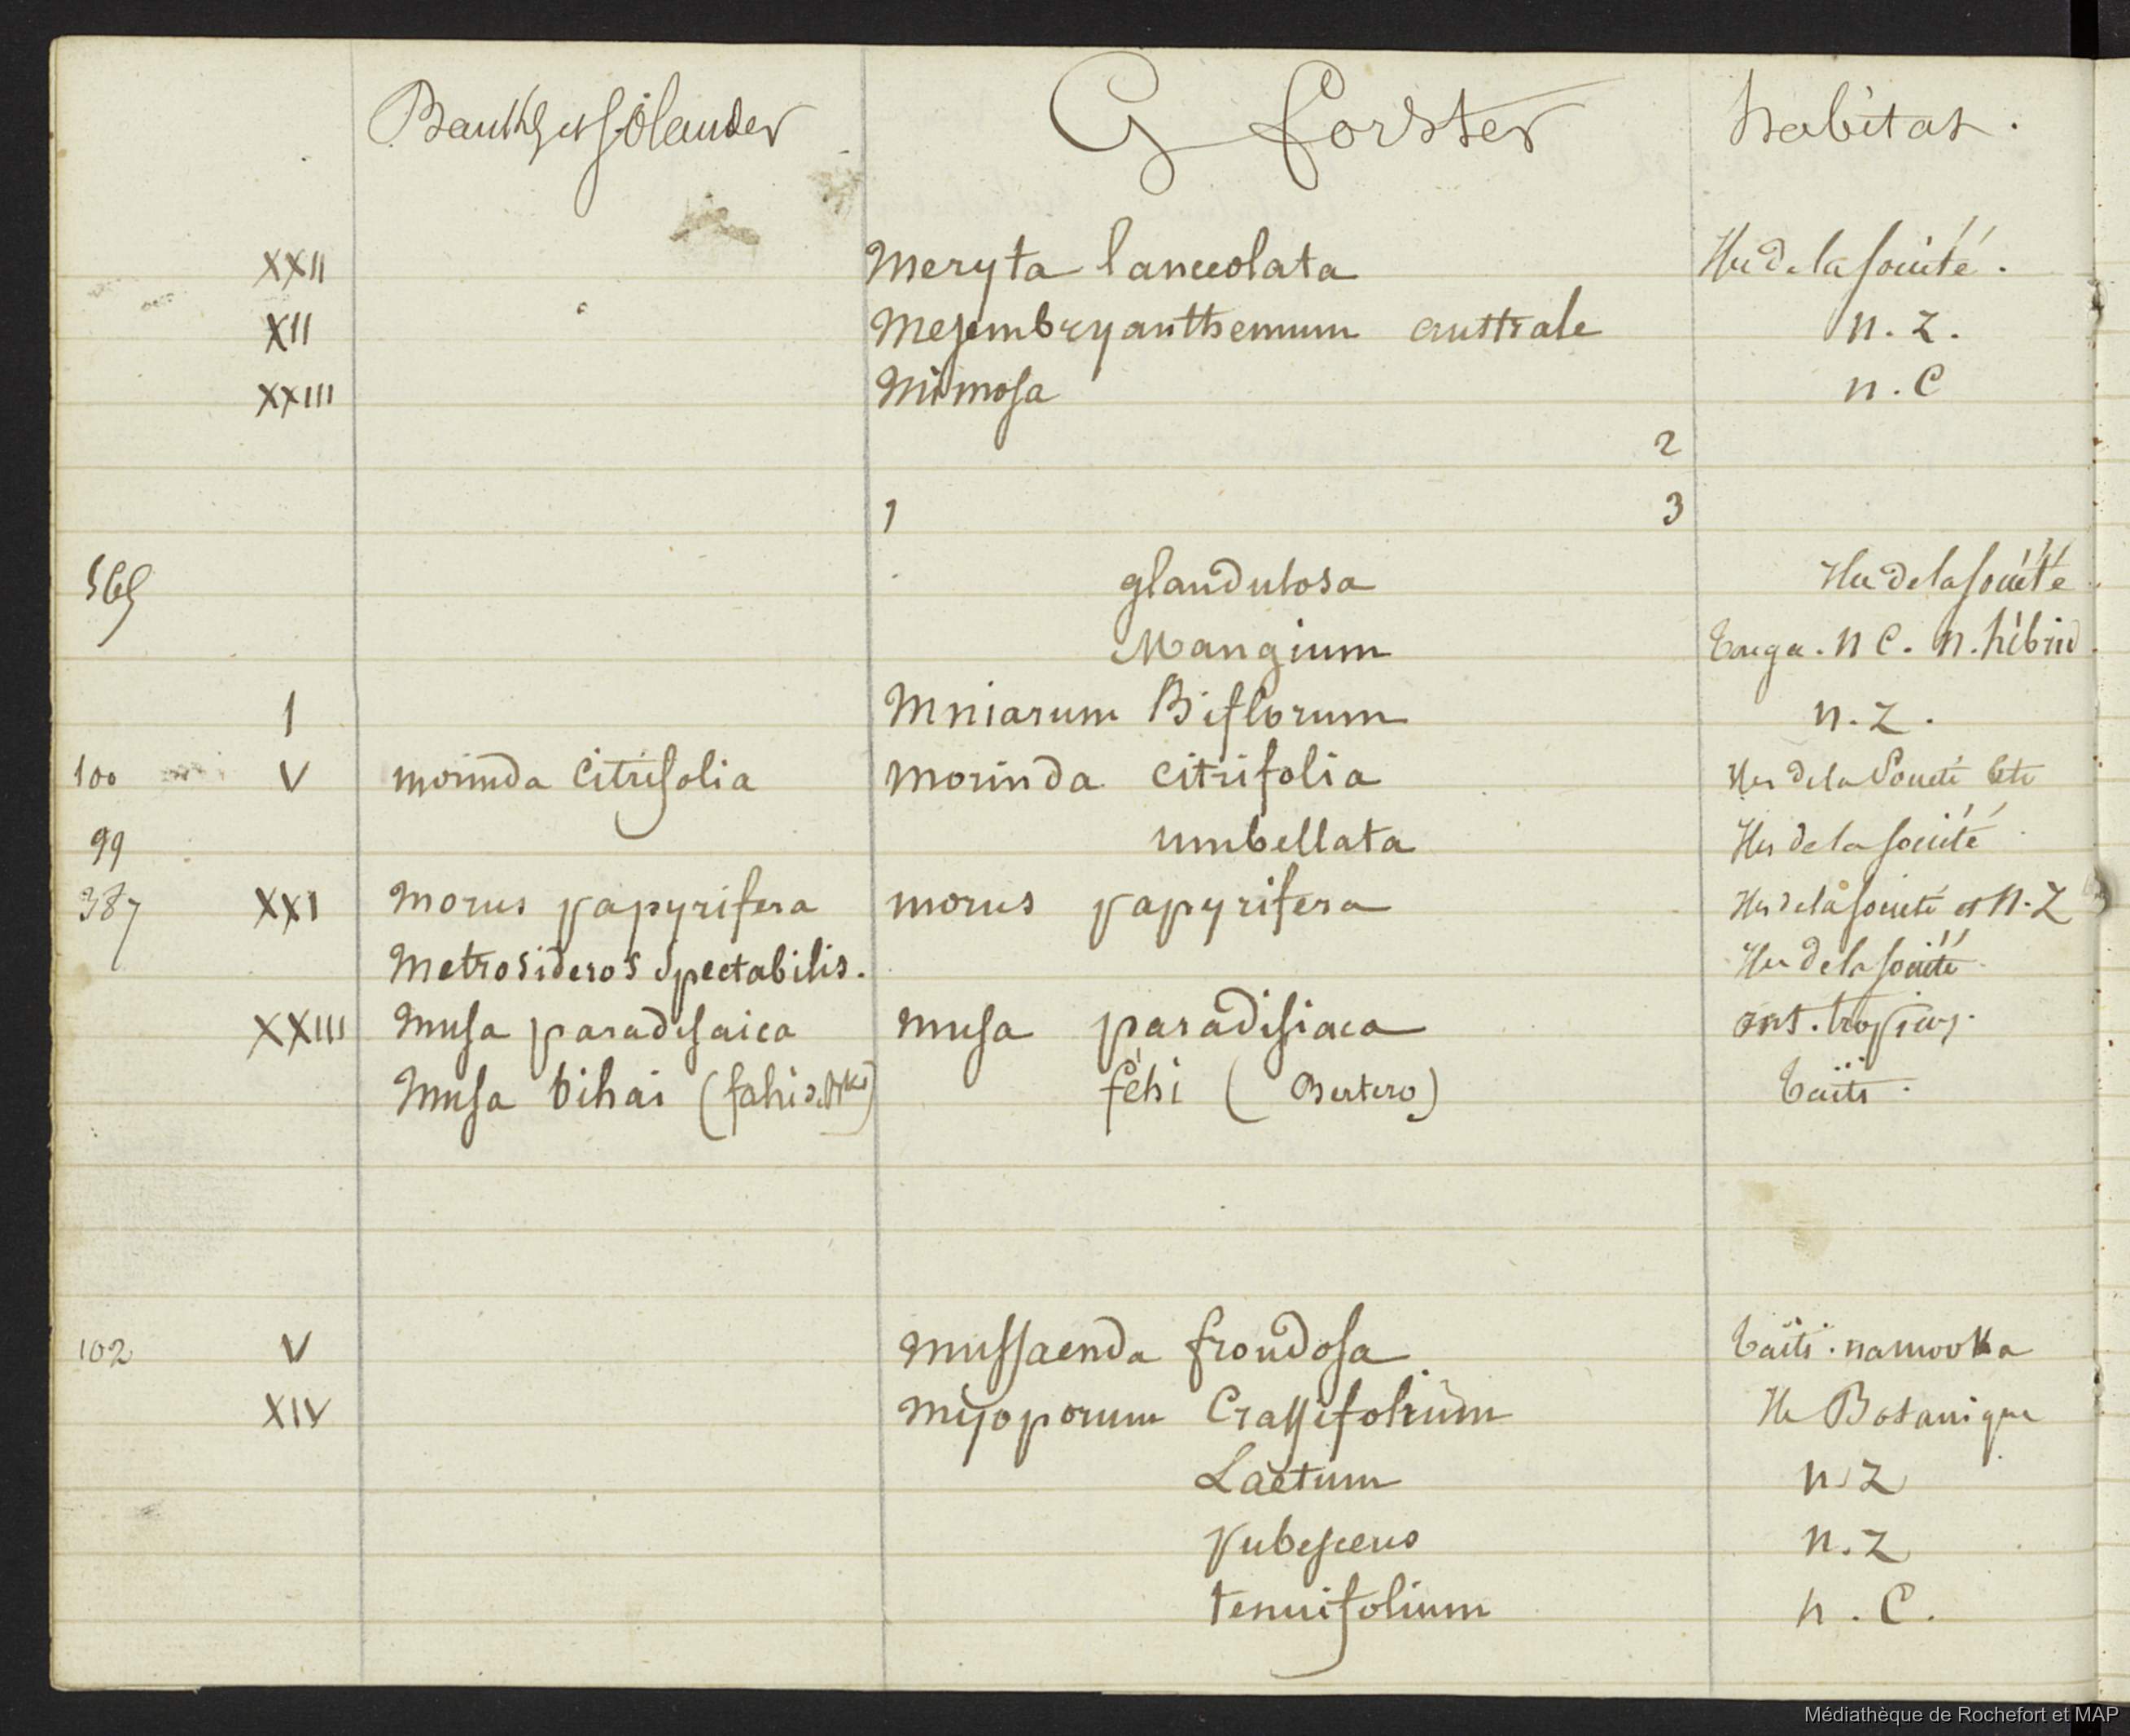 Banks et Solander G forster habitat.
XXII Meryta lanceolata Iles de la Société.
XII Mesembryanthemum australe n. z.
XXIII Mimosa n. C
2
1 3
569 glandulosa Iles de la Société
Mangium Tonga. n C. n. hébrid.
I Mniarum Biflorum n. z.
100 V morinda Citrifolia Morinda citrifolia Iles de la Société Etc
99 umbellata Iles de la Société
387 XXI Morus papyrifera morus papyrifera Iles de la Société et N. Z
Metrosideros Spectabilis. Iles de la Société
XXIII Musa paradisaica musa paradisiaca ons. tropicus.
Musa bihai (fahi de Bks) féhi (Bertero) Taïti.
102 V Mussaenda frondosa Taïti. namooka
XIV Myoporum Crassifolium Ile Botanique
Laetum n z
pubescens n. z
tenuifolium n. C.
Médiathèque de Rochefort et MAP